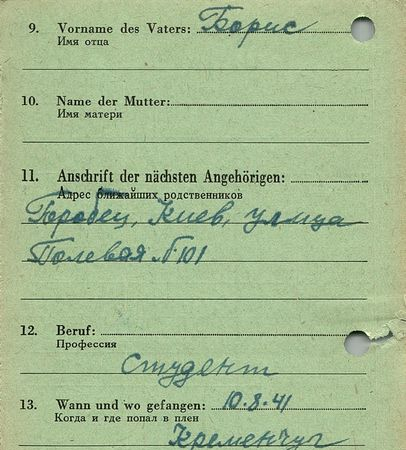 9. Vorname des Vaters: Борис
Имя отца
10. Name der Mutter:
Имя матери
11. Anschrift der nächsten Angehörigen:
Адрес ближайших родственников
Киев, улица
Полевая № 101
12. Beruf:
Профессия
студент
13. Wann und wo gefangen: 10.8.41
Когда и где попал в плен
Кременчуг